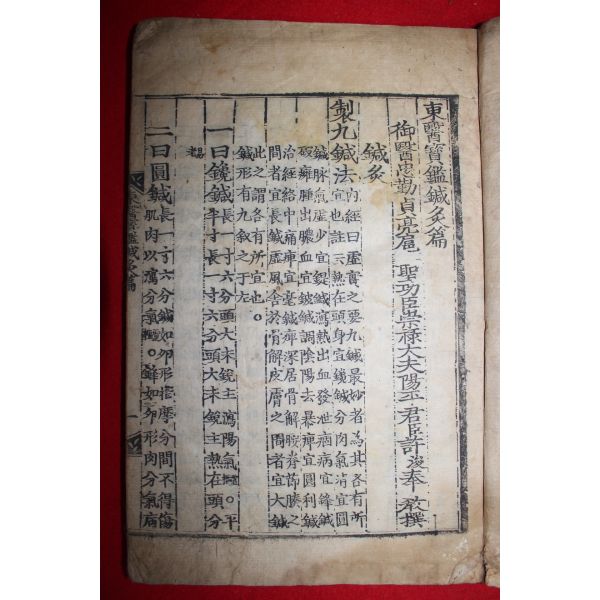 東醫寶鑑鍼灸篇
御醫忠勤貞亮扈 聖功臣崇祿大夫陽平君臣許浚奉 敎撰
鍼灸
製九鍼法
內經曰虛實之要九鍼最妙者爲其各有所
宜也註云熱在頭身宜鑱鍼分肉氣滿宜圓
鍼脉氣虛少宜鍉鍼瀉熱出血發泄痼病宜鋒鍼
破癰腫出膿血宜鈹鍼調陰陽去暴痺宜圓利鍼
治經絡中痛痺宜毫鍼痺深居骨解腰脊節腠之
間者宜長鍼虛風舍於骨解皮膚之間者宜大鍼
此之謂各有所宜也
鍼形有九叙之于左
一曰鑱鍼
長一寸六分頭大末銳主瀉陽氣 平
半寸長一寸六分頭大末銳主熱在頭分
二曰圓鍼
長一寸六分鍼如夘形揩摩分間不得傷
肌肉以瀉分氣 鋒如夘形肉分氣病
鍼灸篇
一